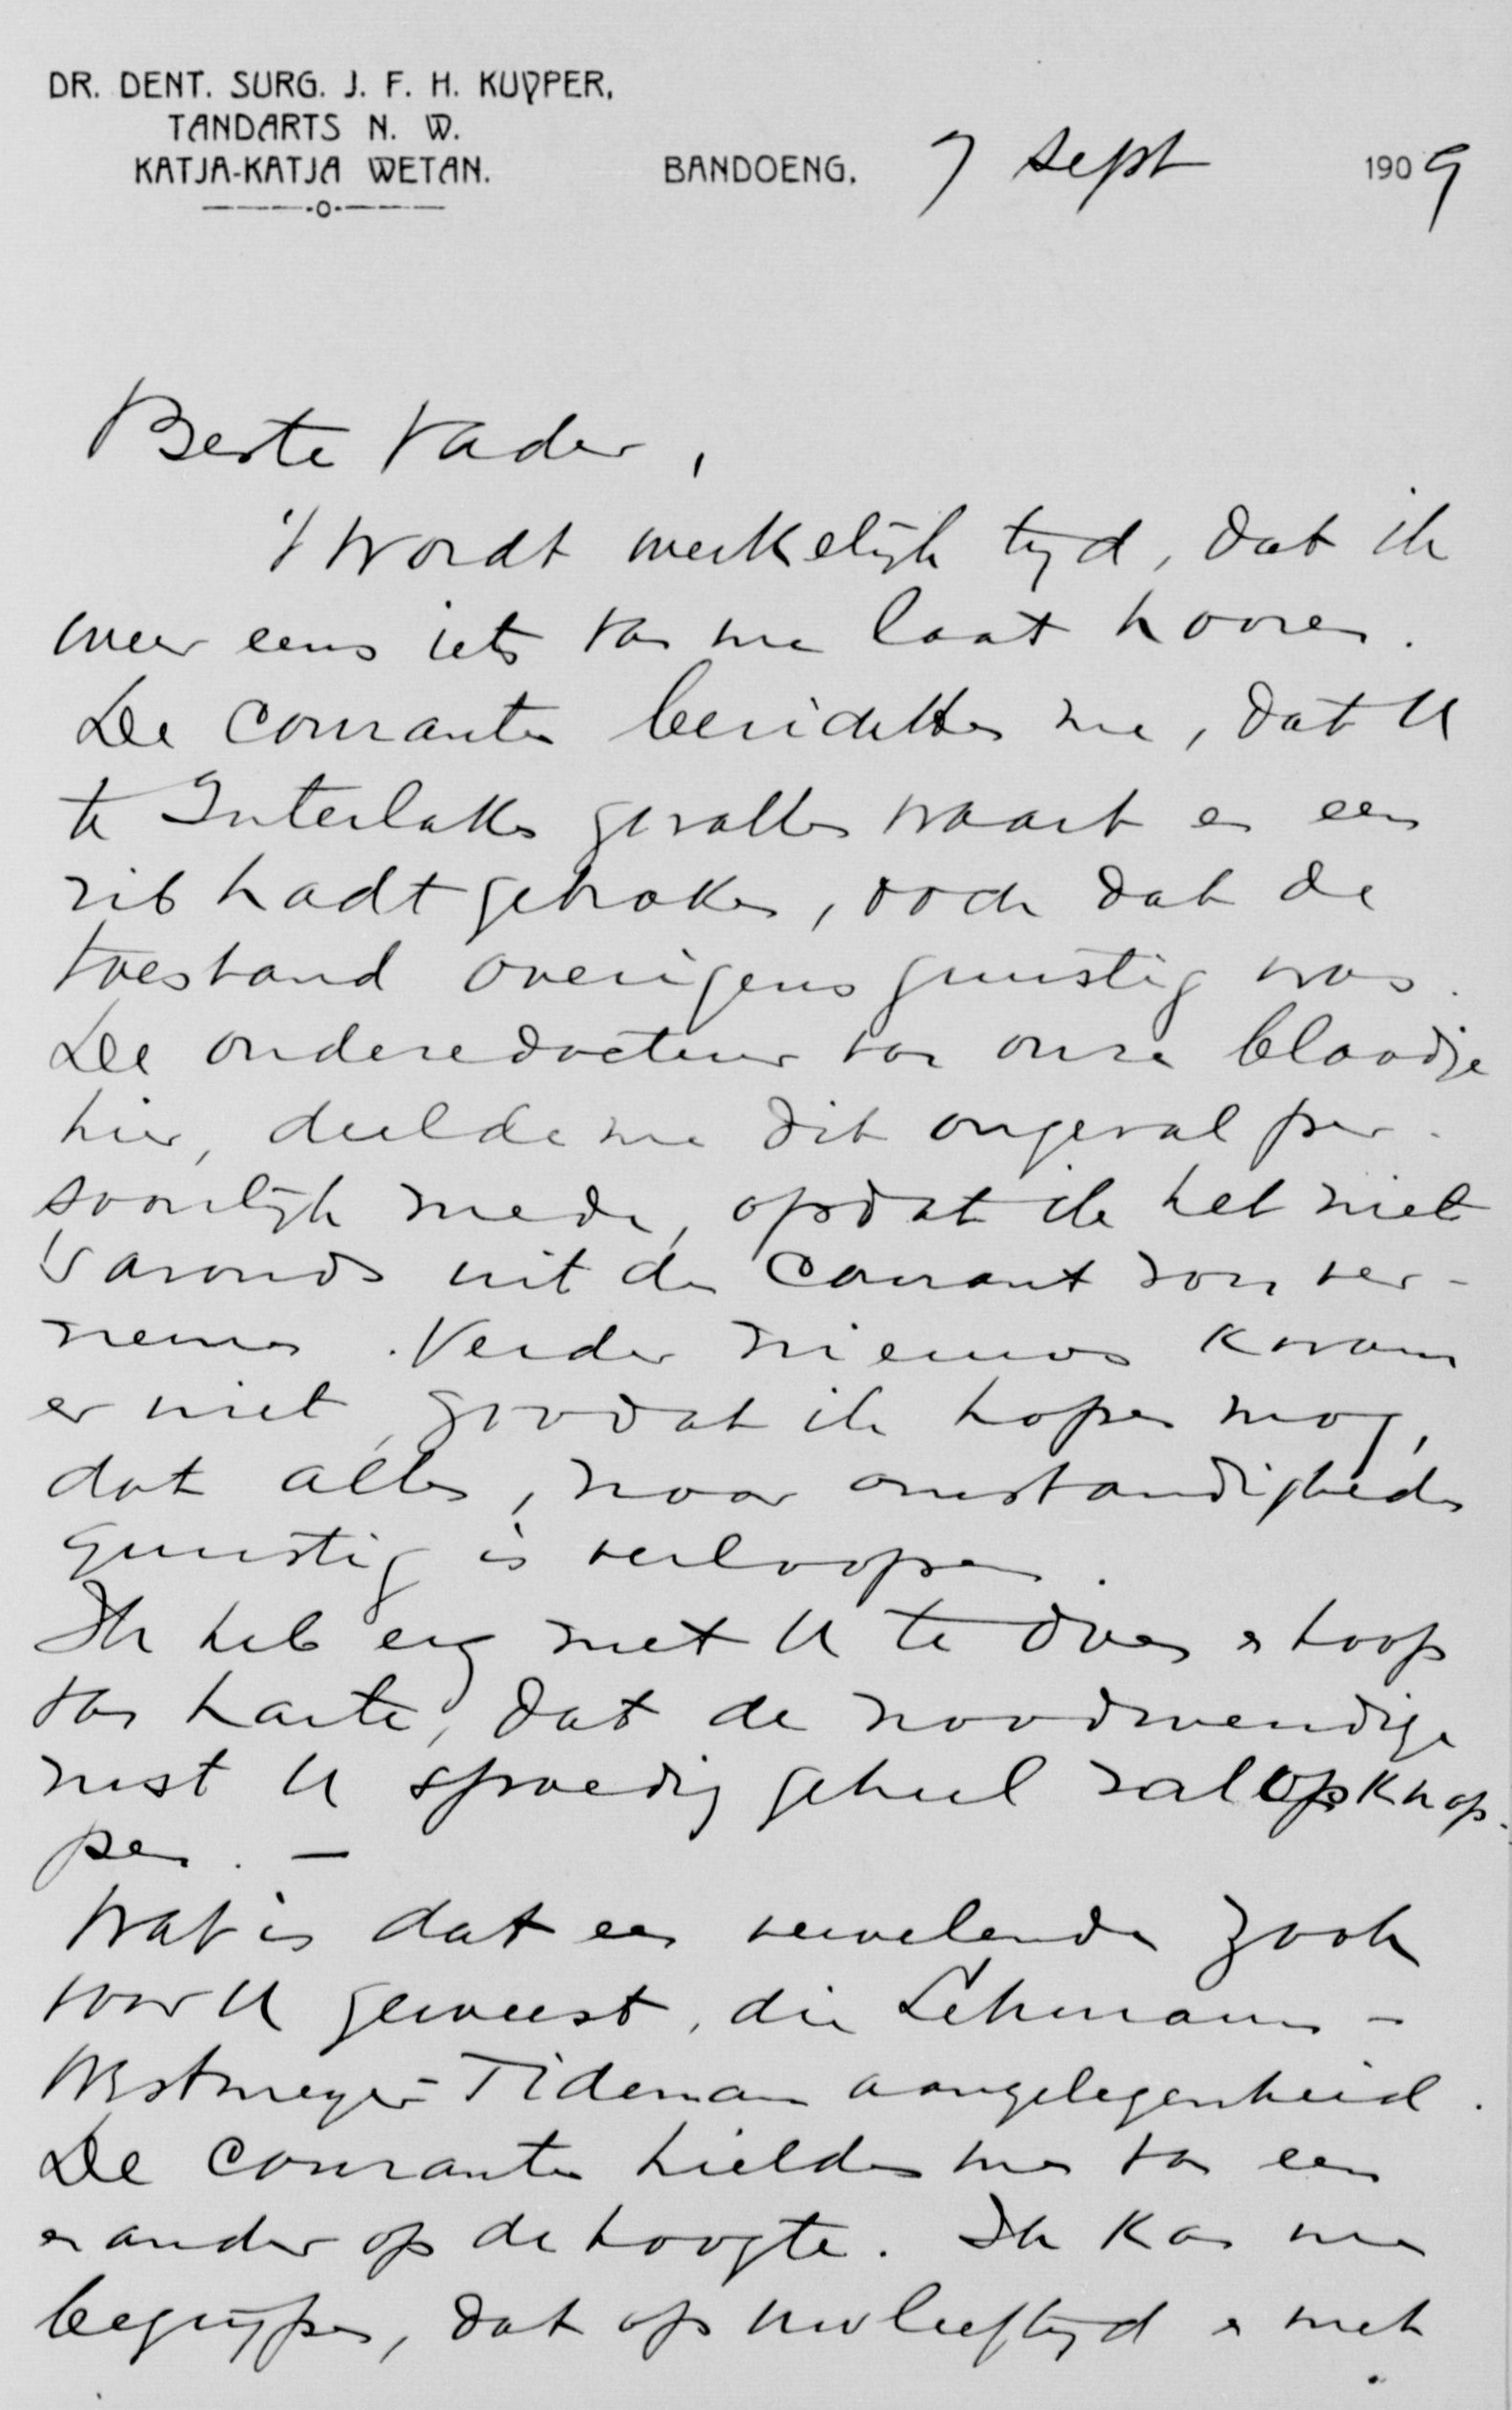 DR. DENT. SURG. J. F. H. KUYPER.
TANDARTS N. W.
KATJA-KATJA WETAN.
BANDOENG, 7 sept 1909
Beste Vader,
't Wordt werkelijk tijd, dat ik
weer eens iets van me laat hooren.
De couranten berichtten me, dat U
te Interlaken gevallen waart en een
rib hadt gebroken, doch dat de
toestand overigens gunstig was.
De onderredacteur van onze blaadje
hier, deelde me dit ongeval per-
soonlijk mede, opdat ik het niet
's avonds uit de courant zou ver-
nemen. Verder nieuws kwam
er niet, zoodat ik hopen mag,
dat alles, naar omstandigheden
gunstig is verloopen.
Ik heb erg met U te doen en hoop
van harte, dat de noodwendige
rust U spoedig geheel zal opknap-
pen. –
Wat is dat een vervelende zaak
voor U geweest, die Lehmann -
Westmeyer - Tideman aangelegenheid.
De couranten hielden me van een
en ander op de hoogte. Ik kan me
begrijpen, dat op uw leeftijd en met